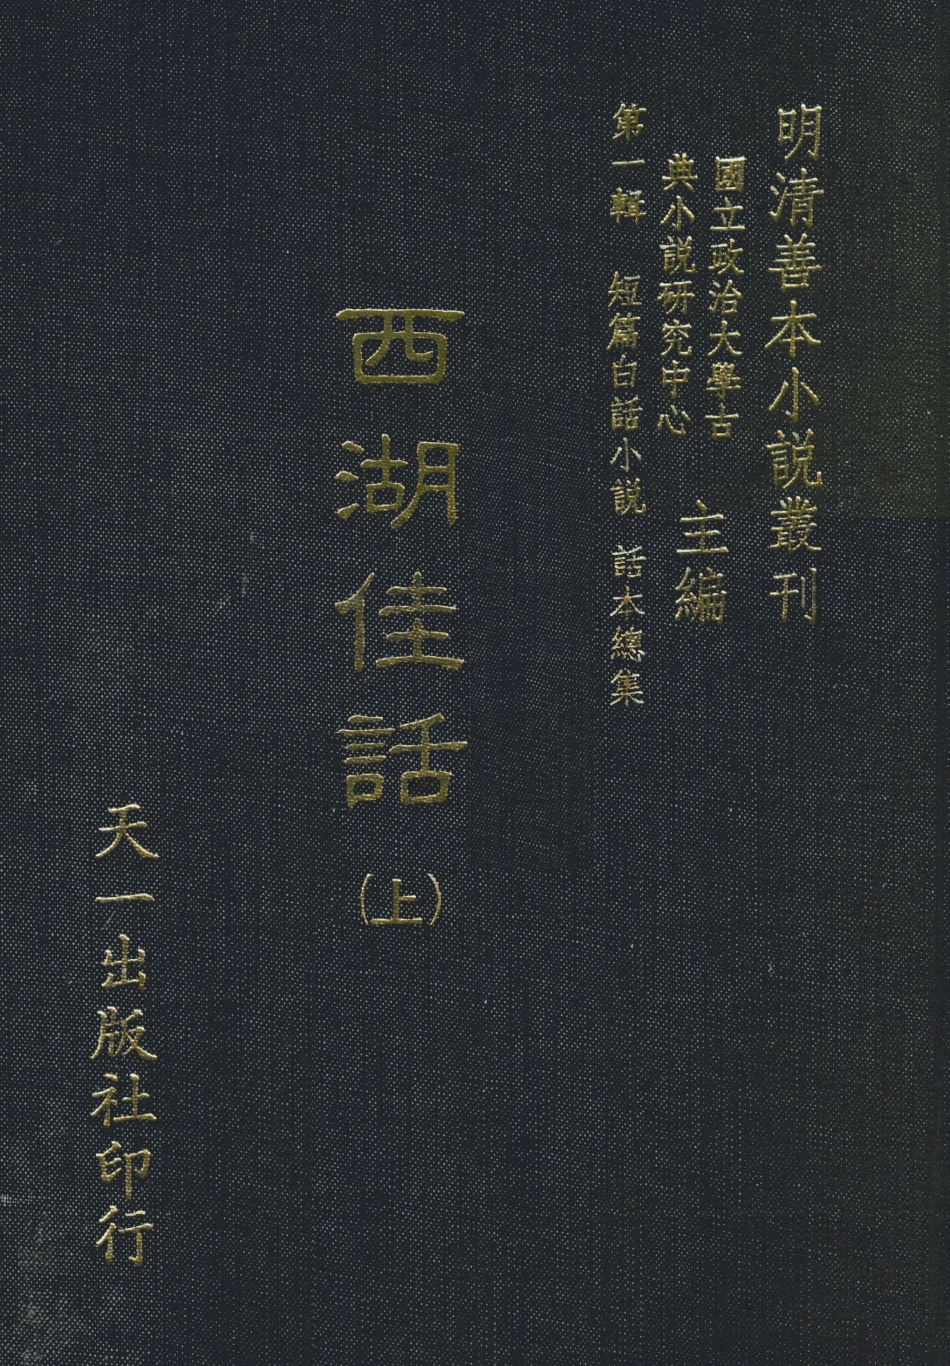 明清善本小説叢刊
國立政治大學古
典小説研究中心
主編
第一輯 短篇白話小説 話本總集
西湖佳話(上)
天一出版社印行